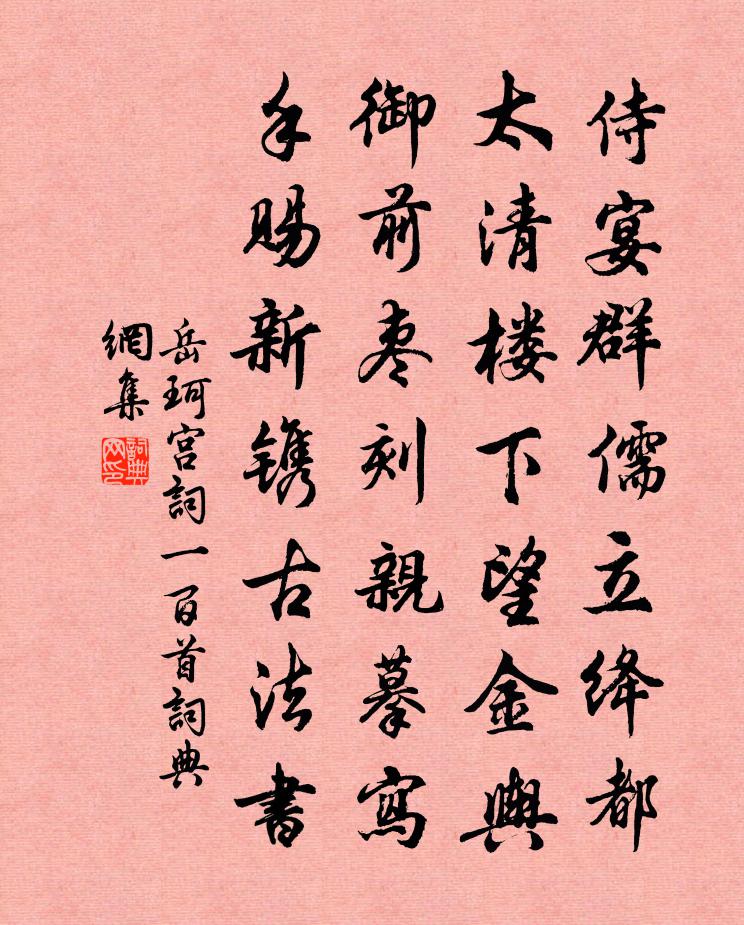 侍宴群儒立绛都
太清楼下望金舆
御前枣刻親摹寫
手赐新镌古法書
岳珂宫詞一百首詞典
網集
詞典
网印